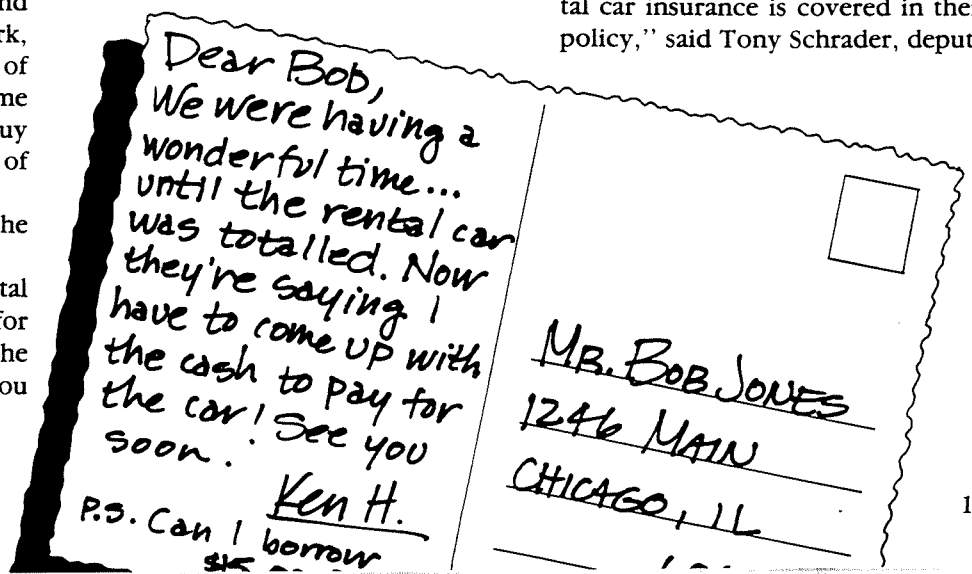 nd
rk,
of
me
uy
of
he
tal
for
he
ou
tal car insurance is covered in the
policy,” said Tony Schrader, deput
Dear Bob,
We were having a
wonderful time...
until the rental car
was totalled. Now
they're saying I
have to come up with
the cash to pay for
the car! See you
soon.
Ken H.
P.S. Can I borrow
MR. BOB JONES
1246 MAIN
CHICAGO, IL
1